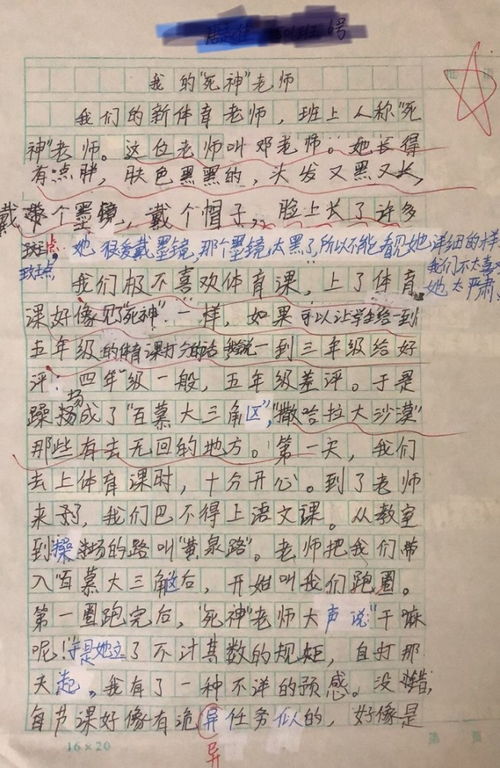 6号
我的"死神"老师
我们的新体育老师，班上人称"死
神"老师。这位老师叫邓老师。她长得
有点胖，肤色黑黑的，头发又黑又长，
戴带个墨镜，戴个帽子，脸上长了许多
斑点，她很爱戴墨镜，那个墨镜太黑了，所以不能看见她详细的样
斑点 我们不太喜欢
她太严肃
我们极不喜欢体育课，上了体育
课好像见了"死神"一样，如果可以让学生给一到
五年级的体育课打分的话 我说一到三年级给好
评，四年"级一般，五年级差评。于是
躁扬成了"百慕大三角区"，"撒哈拉大沙漠"
场
那些有去无回的地方。第一天，我们
去上体育课时，十分开心。到了老师
来了，我们巴不得上语文课。从教室
到操场的路叫"黄泉路"。老师把我们带
入"百慕大三角"后，开始叫我们跑圈。
第一圈跑完后，"死神"老师大声说"干嘛
呢！"于是她立了不计其数的规矩，自打那
天起，我有了一种不洋的预感。没错，
每节课好像有诡异任务似的，好像是
异
16×20
第 頁